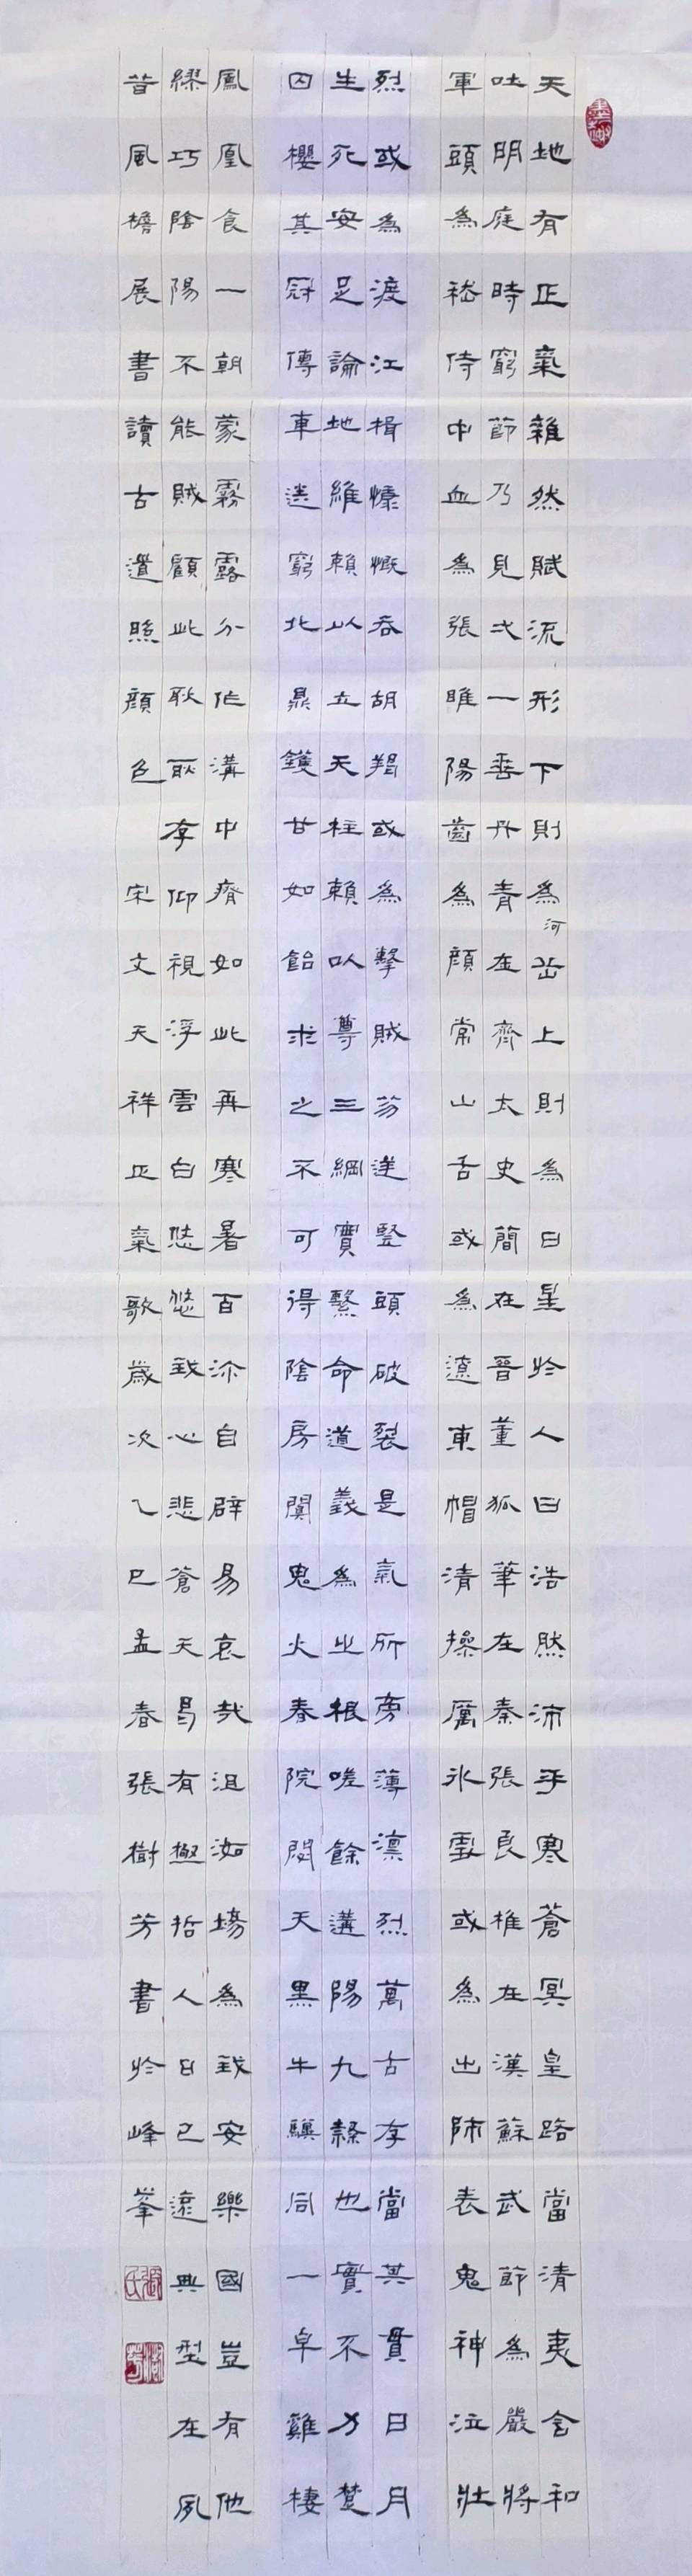 天地有正氣雜然賦流形下則為河岳上則為日星於人曰浩然沛乎塞蒼冥皇路當清夷含和
吐明庭時窮節乃見弌一垂丹青在齊太史簡在晉董狐筆在秦張良椎在漢蘇武節為嚴將
軍頭為嵇侍中血為張睢陽齒為顏常山舌或為遼東帽清操厲冰雪或為出師表鬼神泣壯
烈或為渡江楫慷慨吞胡羯或為擊賊笏逆豎頭破裂是氣所旁薄凜烈萬古存當其貫日月
生死安足論地維賴以立天柱賴以尊三綱實繫命道義為之根嗟餘遘陽九隸也實不力楚
囚櫻其冠傳車送窮北鼎鑊甘如飴求之不可得陰房闃鬼火春院閟天黑牛驥同一皁雞棲
鳳凰食一朝蒙霧露分作溝中瘠如此再寒暑百沴自辟易哀哉沮洳場為我安樂國豈有他
繆巧陰陽不能賊顧此耿耿存仰視浮雲白悠悠我心悲蒼天曷有極哲人日已遠典型在夙
昔風檐展書讀古道照顏色 宋文天祥正氣歌歲次乙巳孟春張樹芳書於峰峯